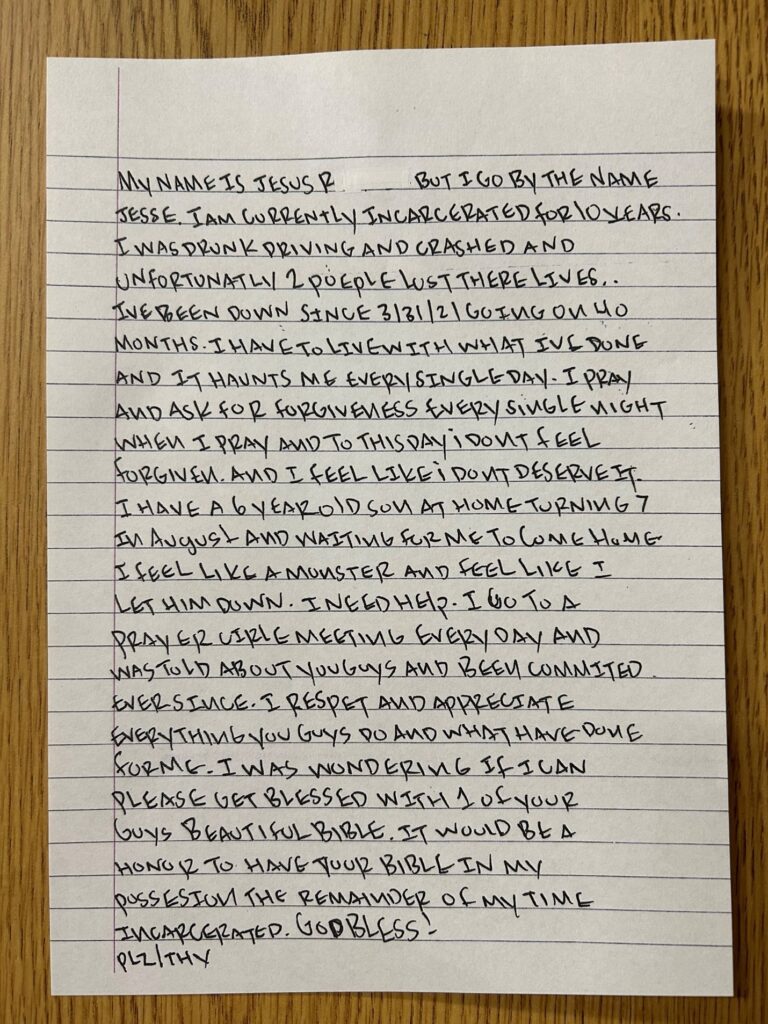 MY NAME IS JESUS R BUT I GO BY THE NAME
JESSE. I AM CURRENTLY INCARCERATED FOR 10 YEARS.
I WAS DRUNK DRIVING AND CRASHED AND
UNFORTUNATLY 2 POEPLE LOST THERE LIVES..
IVE BEEN DOWN SINCE 3/31/21 GOING ON 40
MONTHS. I HAVE TO LIVE WITH WHAT IVE DONE
AND IT HAUNTS ME EVERY SINGLE DAY. I PRAY
AND ASK FOR FORGIVENESS EVERY SINGLE NIGHT
WHEN I PRAY AND TO THIS DAY i DONT FEEL
FORGIVEN. AND I FEEL LIKE i DONT DESERVE IT.
I HAVE A 6 YEAR OLD SON AT HOME TURNING 7
IN AUGUST AND WAITING FOR ME TO COME HOME
I FEEL LIKE A MONSTER AND FEEL LIKE I
LET HIM DOWN. I NEED HELP. I GO TO A
PRAYER CIRLE MEETING EVERY DAY AND
WAS TOLD ABOUT YOU GUYS AND BEEN COMMITED
EVER SINCE. I RESPET AND APPRECIATE
EVERYTHING YOU GUYS DO AND WHAT HAVE DONE
FOR ME. I WAS WONDERING IF I CAN
PLEASE GET BLESSED WITH 1 OF YOUR
GUYS BEAUTIFUL BIBLE. IT WOULD BE A
HONOR TO HAVE YOUR BIBLE IN MY
POSSESION THE REMAINDER OF MY TIME
INCARCERATED. GOD BLESS!
PLZ/THY